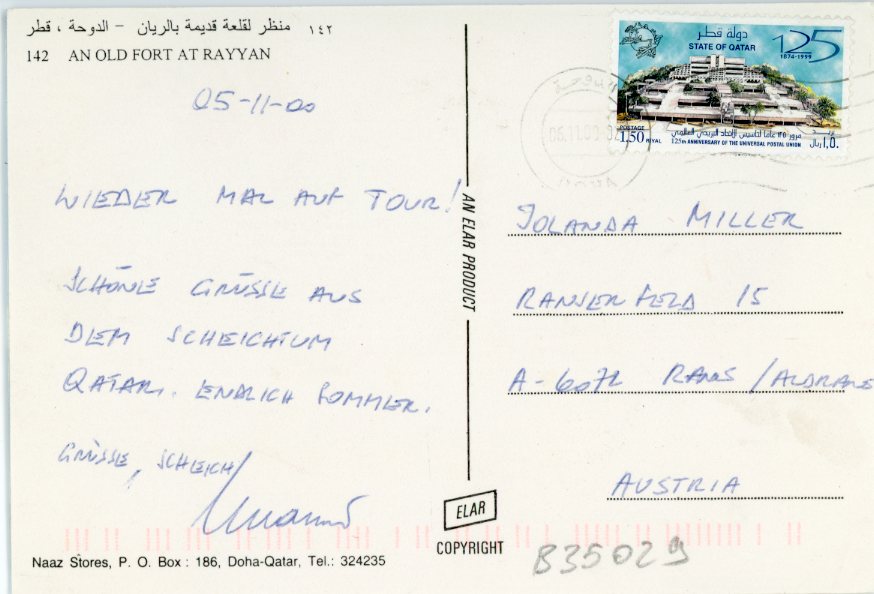 منظر لقلعة قديمة بالريان - الدوحة ، قطر ١٤٢
142 AN OLD FORT AT RAYYAN
05-11-00
WIEDER MAL AUF TOUR!
SCHÖNE GRÜSSE AUS
DEM SCHEICHTUM
QATAR. ENDLICH SOMMER.
GRÜSSE, SCHEICH
Naaz Stores, P. O. Box : 186, Doha-Qatar, Tel.: 324235
AN ELAR PRODUCT
ELAR
COPYRIGHT
دولة قطر
STATE OF QATAR
125
1874-1999
POSTAGE
1,50 RIYAL
مرور ١٢٥ عاما لتأسيس الإتحاد البريدي العالمي
125th ANNIVERSARY OF THE UNIVERSAL POSTAL UNION
بريد
١,٥٠ ريال
06.11.00
JOLANDA MILLER
15
A-6071
AUSTRIA
B35029